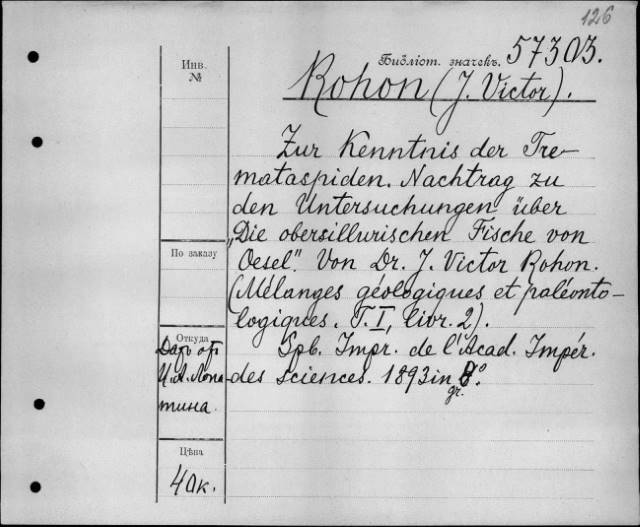 126
Библіот. значекъ. 57303.
Инв. №
Rohon (J. Victor).
Zur Kenntnis der Tre-
mataspiden. Nachtrag zu
den Untersuchungen über
„Die obersillurischen Fische von
По заказу
Oesel". Von Dr. J. Victor Rohon.
(Mélanges géologiques et paléonto-
logiques. T. I, livr. 2).
Откуда
Даръ от
И. А. Лопа
тина.
Spb. Impr. de l'Acad. Impér.
des sciences. 1893 in gr. 8°.
Цѣна
40к.